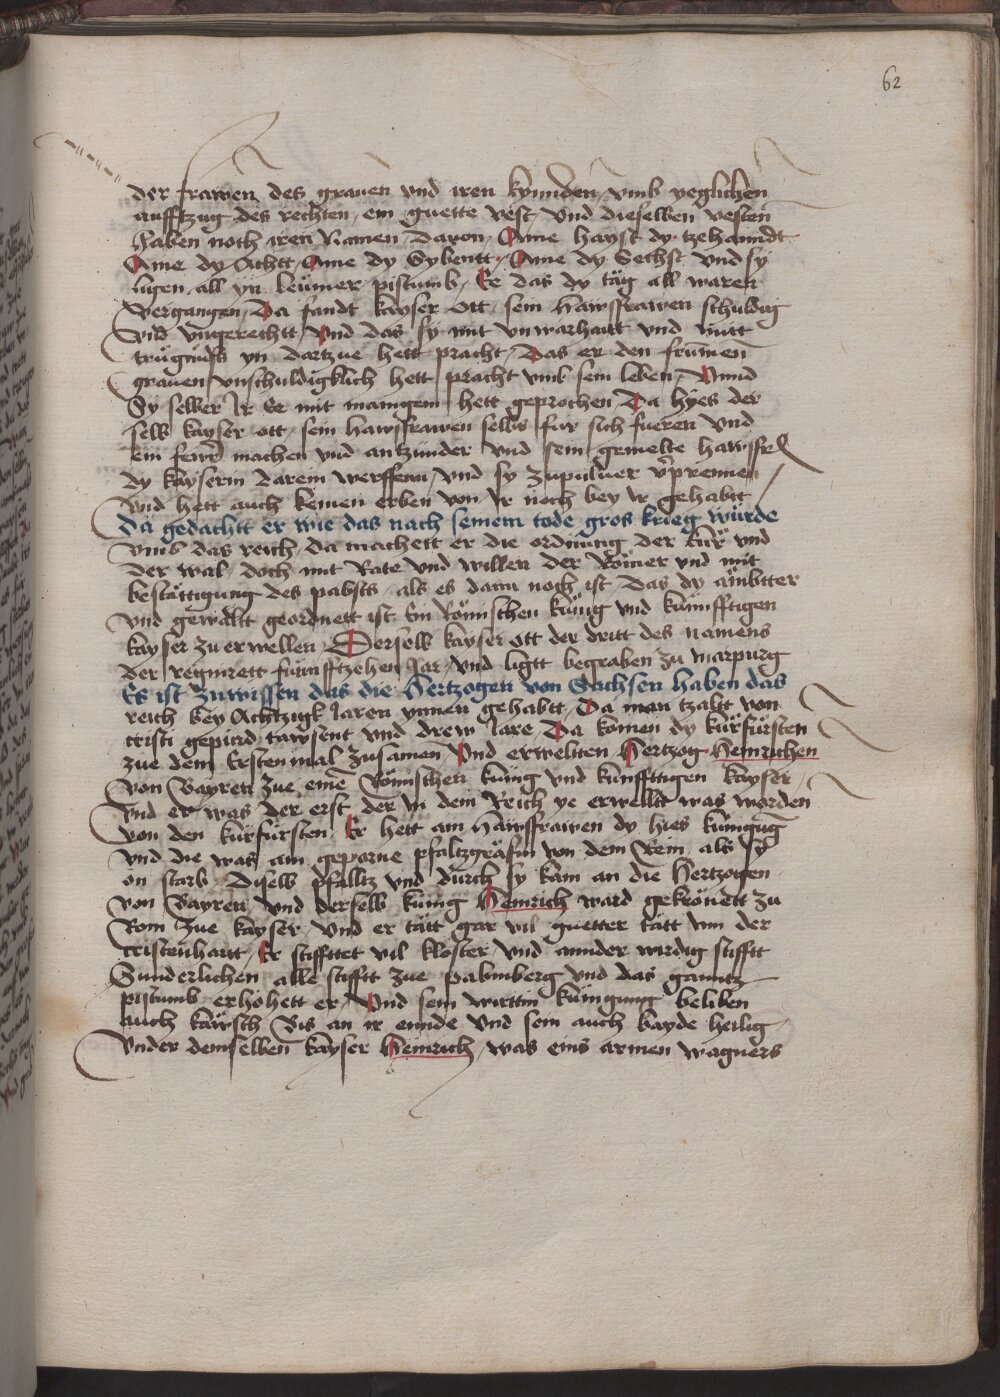 62
der frawen des graven vnd iren kynnden vmb yeglichen
auffczug des rechten ein guette vest vnd dieselben vesten
haben noch iren Namen daron Aine hayst dy tzehanndt
Aine dy Achtt Aine dy Sybentt Aine dy Sechst vnd sy
ligen all yn leuner pistumb Ee das dy täg all waren
vergangen Da fandt kayser ott sein hawsfrawen schuldig
vnd vngerechtt vnd das sy mit vnwarhait vnd mitt
trügnüss yn dartzue hett pracht Das er den frumen
graven vnschuldigklich hett pracht vmb sein leben Vnnd
Sy selber Ir Ee mit manigem hett geprochen Da hyes der
selb kayser ott sein hawsfrawen selbs fur sich fueren vnd
ein fewr machen vnd antzünder vnd sein gemelte hawsfr
dy kayserin darein werffenn vnd sy zupuluer verprennen
vnd hett auch keinen erben von Ir noch bey Ir gehabtt
Da gedachtt er wie das nach seinem tode gros krieg würde
vmb das reich da machett er die ordnung der kür vnd
der wal doch mit Rate vnd willen der Römer vnd mit
bestättigung des pabsts als es dann noch ist Das dy ämbtter
vnd gewaltt geordnett ist Ein Römischen künig vnd künnfftigen
kayser zu erwellen Derselb kayser ott der dritt des namens
der regnirett fünfftzehen Jar vnd ligtt begraben zu marpurg
Es ist zuwissen das die Hertzogen von Sachsen haben das
reich bey Achtzigk Jaren ynnen gehabtt Da man tzaltt von
cristi gepurd tawsent vnd drew Jare Da komen dy kürfürsten
zue dem Ersten mal zusamen Vnd erweltten Hertzog Heinrichen
von Bayren zue eine Römischen künig vnd künfftigen kayser
vnd er was der erst der in dem Reich ye erwelltt was worden
von den kürfürsten Er hett ain Hawsfrawen dy hies künigug
vnd die was ain geporne pfaltzgräfin von dem Rein als sy
on starb Diselb pfalltz vnd durch sy kam an die Hertzogen
von Bayren vnd derselb künig Heinrich ward gekrönett zu
Rom zue kayser vnd er tätt gar vil guetter tätt vm der
cristenhait Er stifftet vil kloster vnd annder wirdig stifft
Sunderlichen alle stifft zue pabmberg vnd das ganntz
pistumb erhöhett er Vnd sein wirttin künigung beliben
auch käwsch Bis an ir ennde vnd sein auch bayde heilig
Vnder demselben kayser Heinrich was eins armen wagners